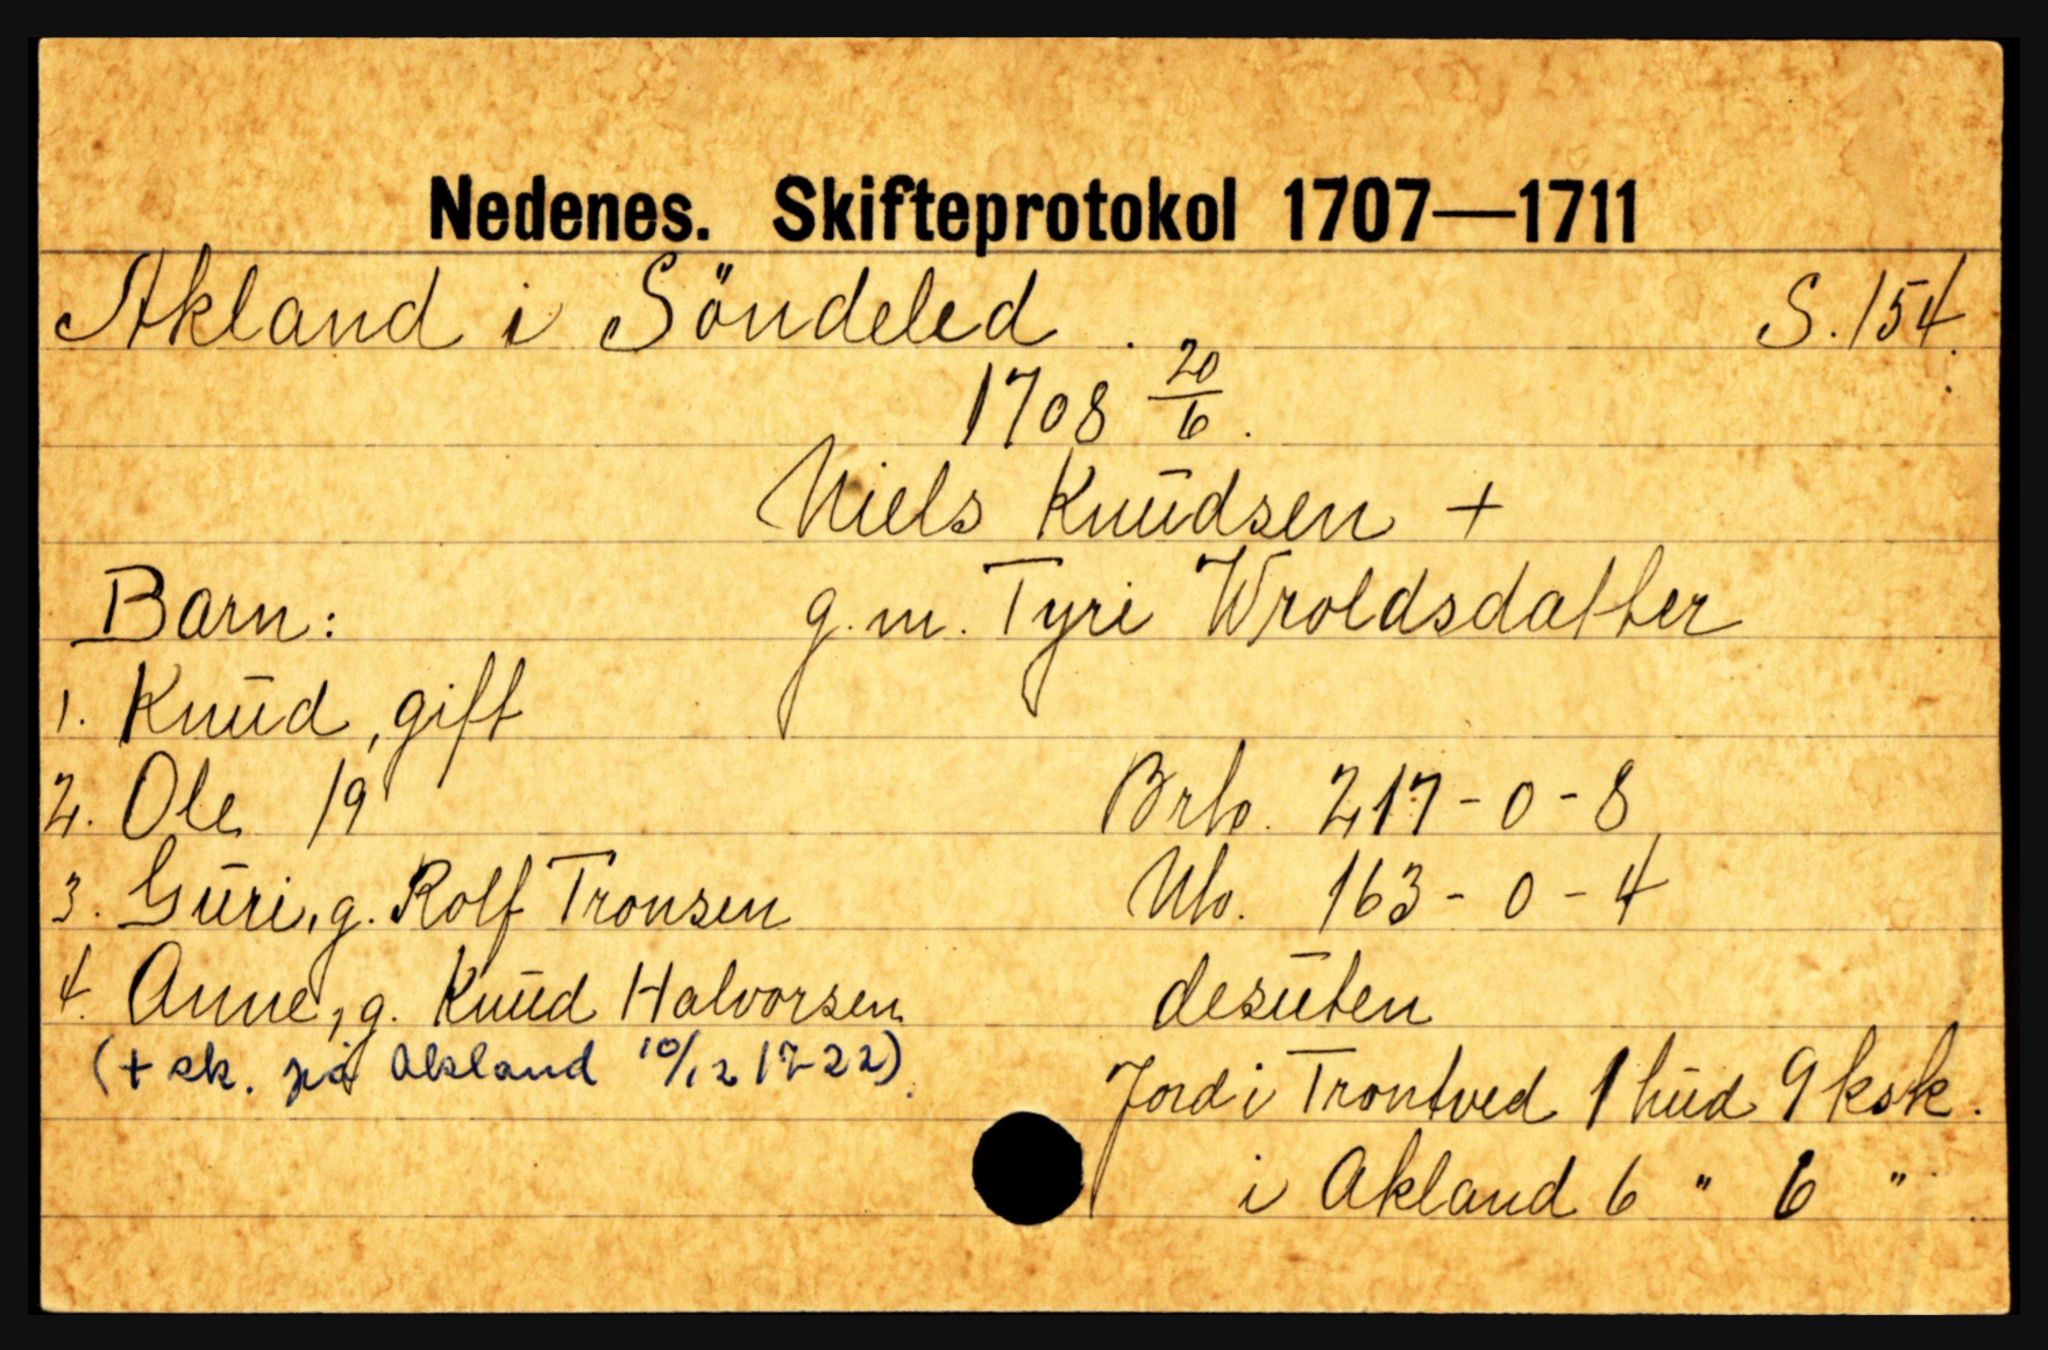 Nedenes. Skifteprotokol 1707—1711
Akland i Söndeled. S. 154.
1708 20/6.
Niels Knūdsen +
Barn: g.m. Tyri Wroldsdatter
1. Knūd, gift
2. Ole 19 Brto. 217-0-8
3. Gūri, g. Rolf Tronsen Nto. 163-0-4
4. Anne, g. Knūd Halvorsen desūten
(+ sk. på Akland 10/12 1722). Jord i Trontved 1 hūd 9 ksk.
i Akland 6 " 6 "